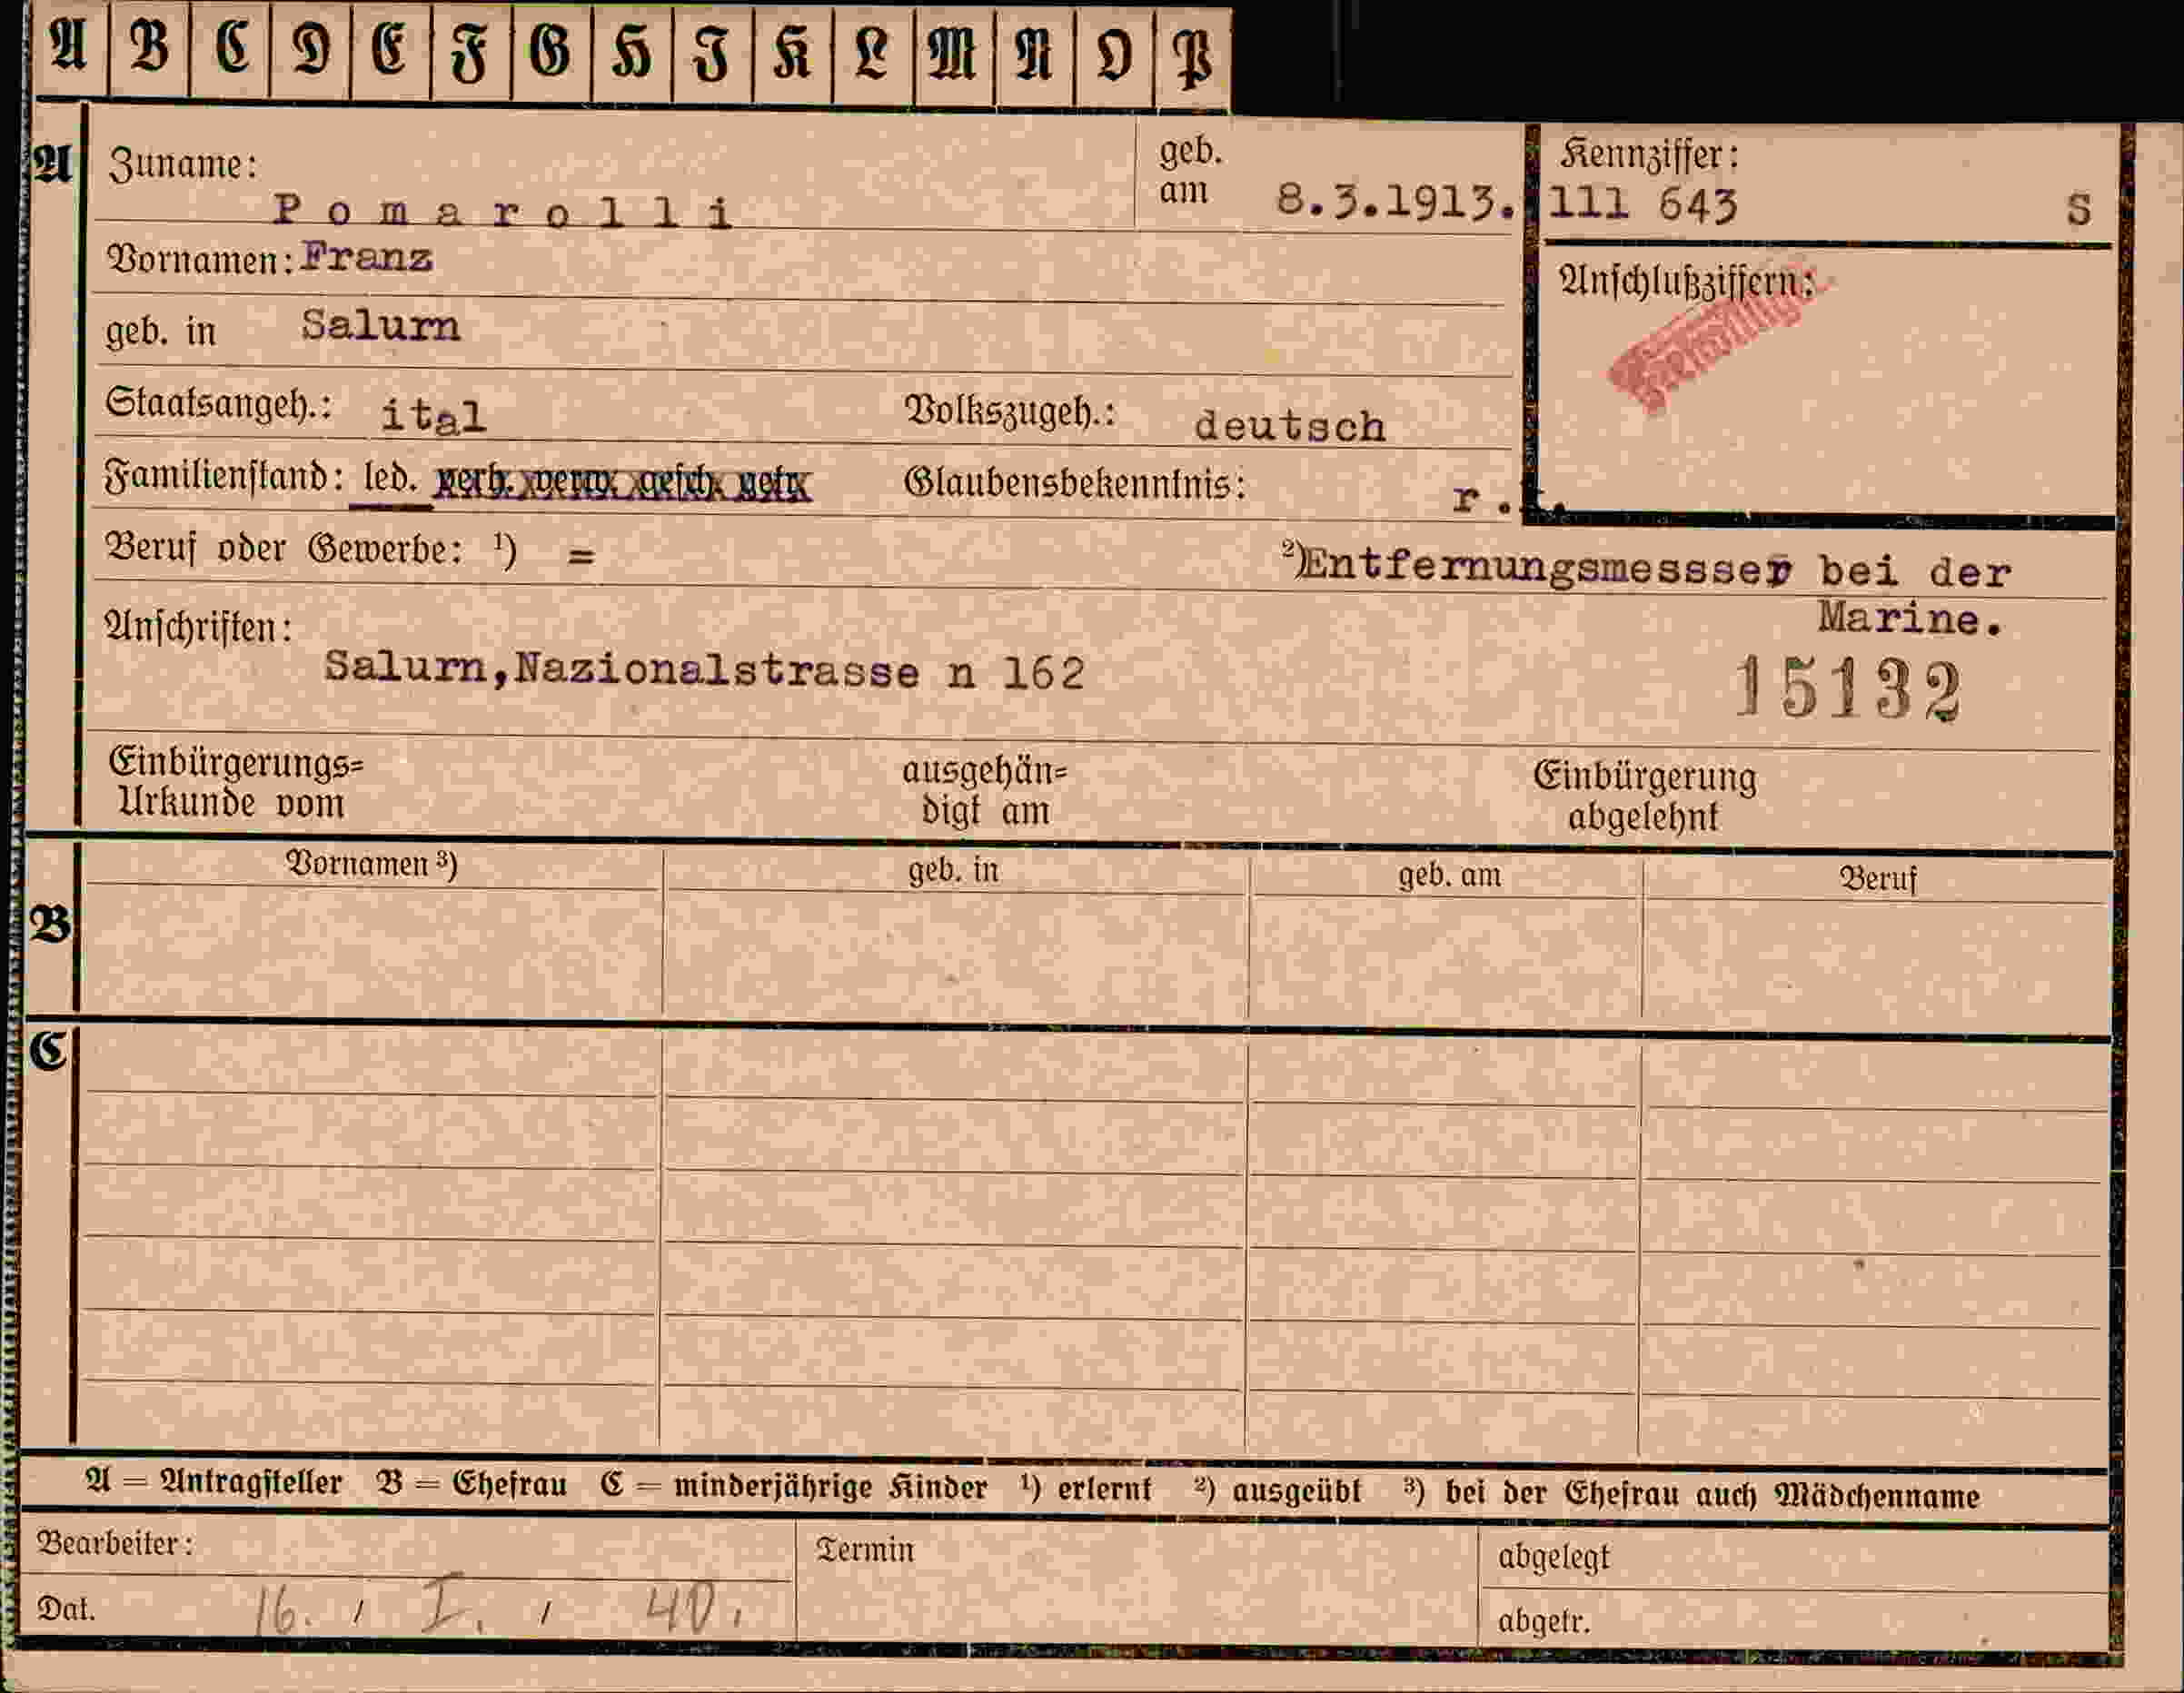 A B C D E F G H I K L M N O P
A
Zuname: P o m a r o l l i
geb. am 8.3.1913.
Kennziffer: 111 643 S
Vornamen: Franz
Anschlußziffern:
geb. in Salurn
Staatsangeh.: ital
Volkszugeh.: deutsch
Familienstand: led. verh. verw. gesch. getr.
Glaubensbekenntnis: r.
Beruf oder Gewerbe: ¹) =
²)Entfernungsmessser bei der
Marine.
Anschriften:
Salurn,Nazionalstrasse n 162
15132
Einbürgerungs=
Urkunde vom
ausgehän=
digt am
Einbürgerung
abgelehnt
B
Vornamen ³) geb. in geb. am Beruf
C
A = Antragsteller B = Ehefrau C = minderjährige Kinder ¹) erlernt ²) ausgeübt ³) bei der Ehefrau auch Mädchenname
Bearbeiter:
Termin
abgelegt
Dat. 16. / I. / 40.
abgetr.